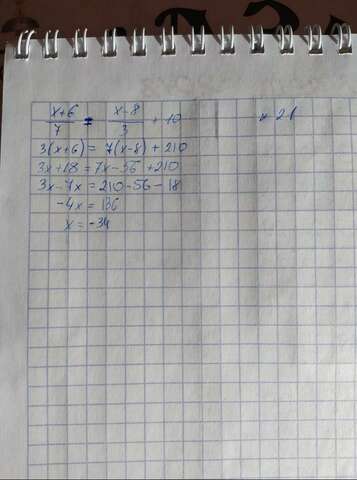 x+6/7 = x-8/3 + 10 × 21
3(x+6) = 7(x-8) + 210
3x+18 = 7x-56 +210
3x-7x = 210-56-18
-4x = 136
x = -34